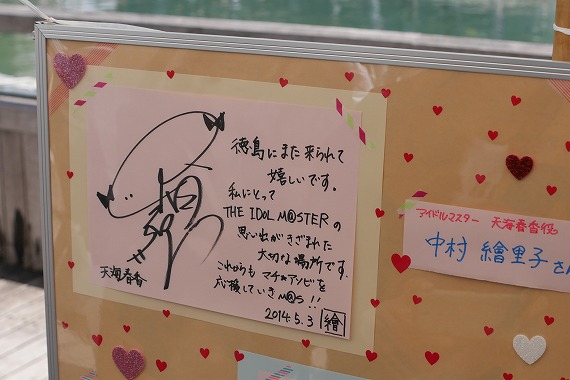 徳島にまた来られて
嬉しいです。
私にとって
THE IDOL M@STERの
思い出がきざまれた
大切な場所です。
これからも マチ★アソビを
応援していきM@S!!
2014.5.3 繪
天海春香
アイドルマスター 天海春香役
中村 繪里子さん